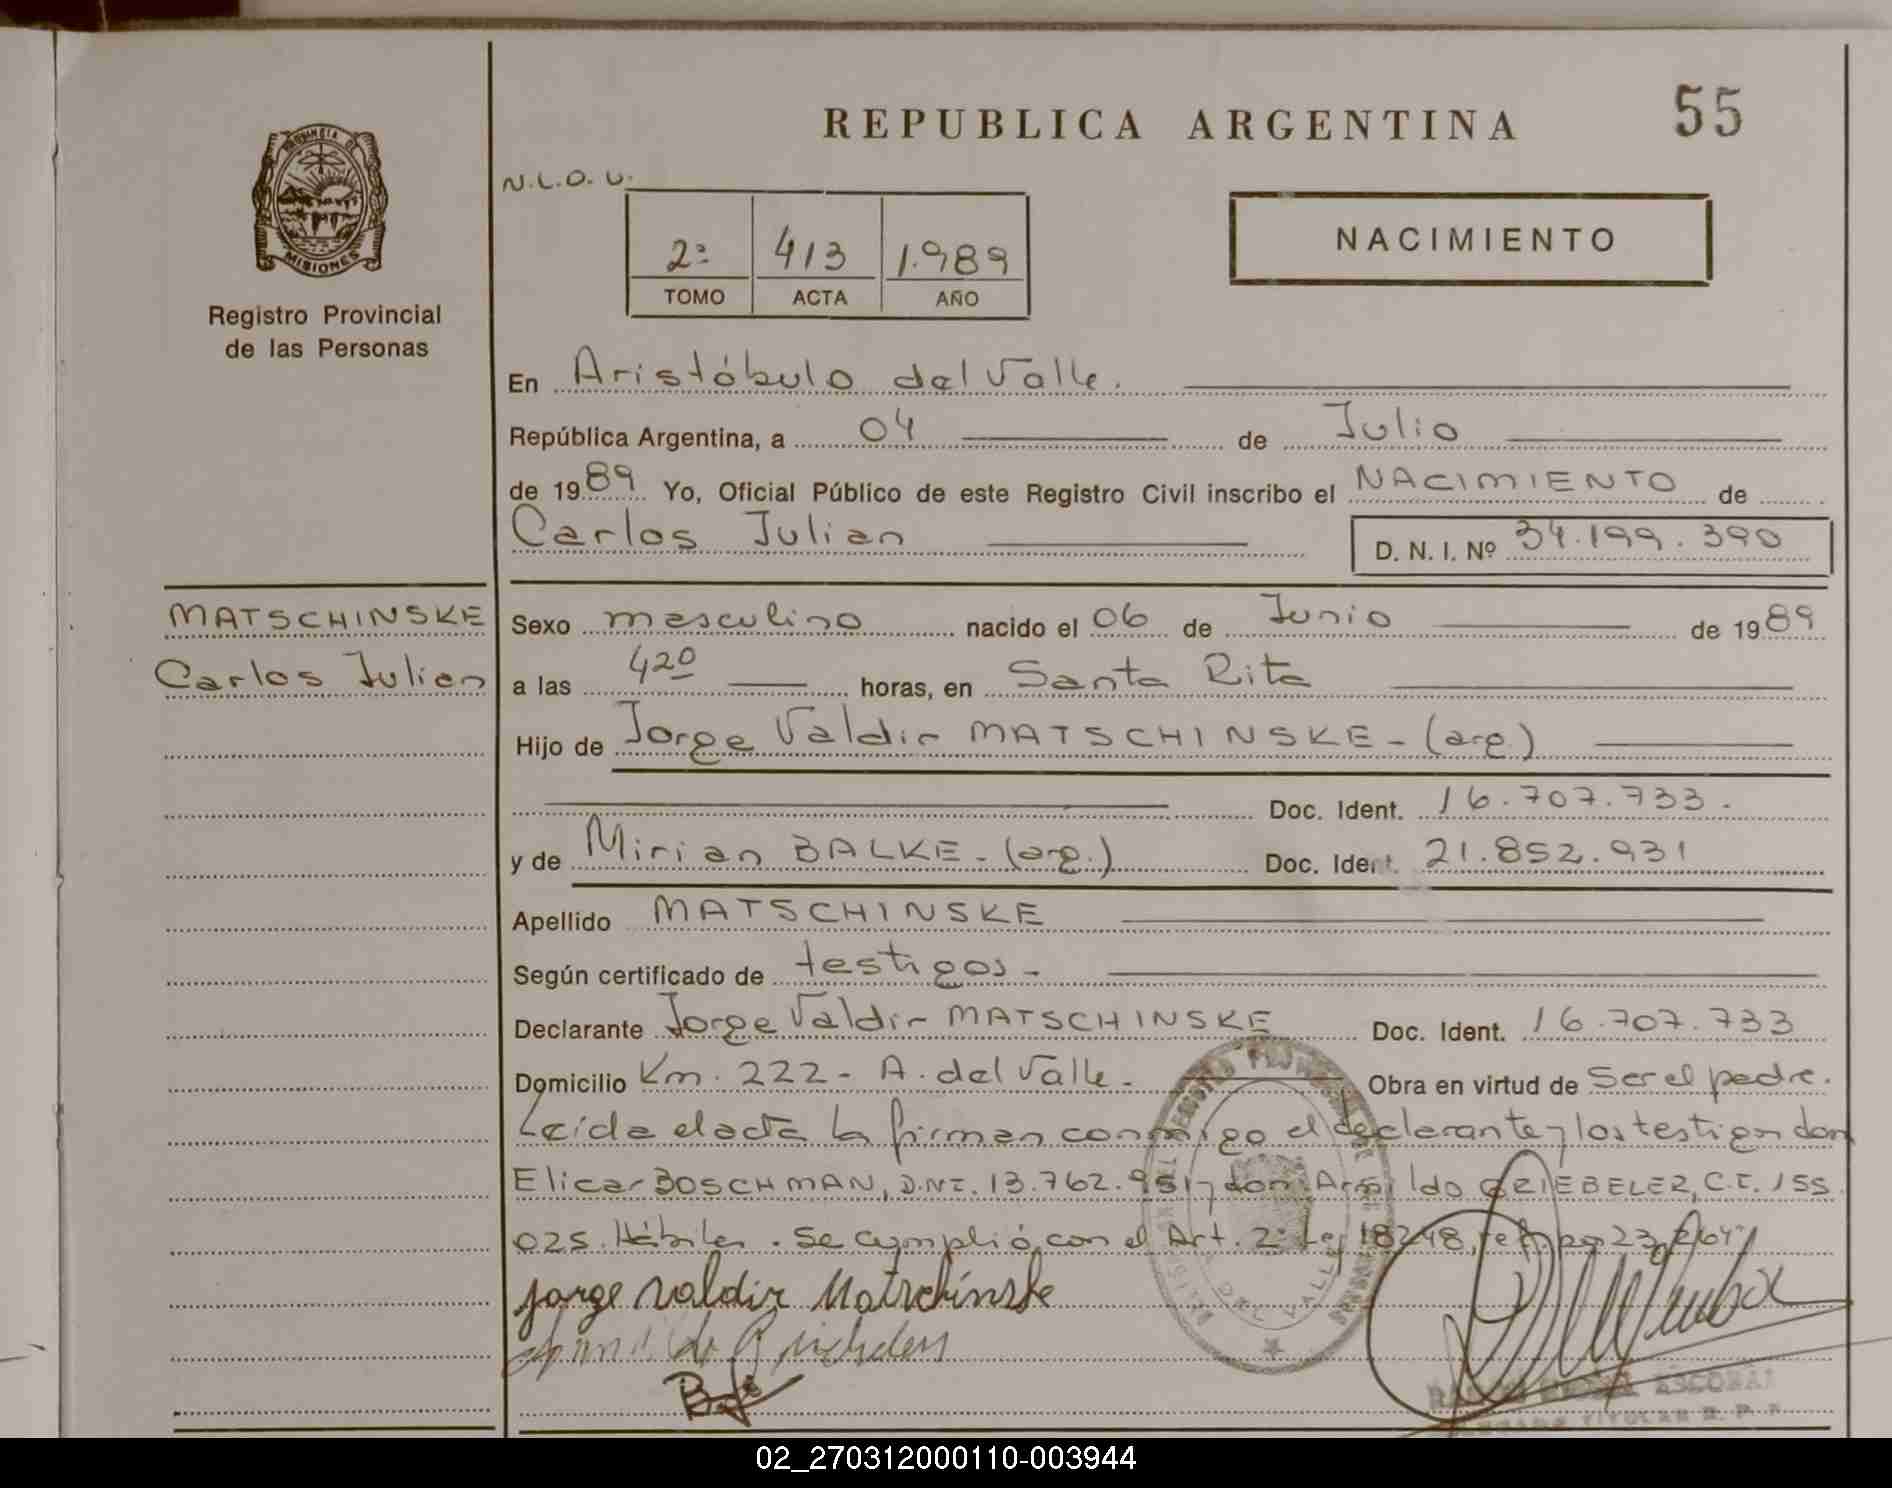 REPUBLICA ARGENTINA
55
PROVINCIA DE
MISIONES
Registro Provincial
de las Personas
N.L.O.U.
2º 413 1.989
TOMO ACTA AÑO
NACIMIENTO
En Aristóbulo del Valle.
República Argentina, a 04 de Julio
de 1989 Yo, Oficial Público de este Registro Civil inscribo el NACIMIENTO de
Carlos Julian
D. N. I. Nº 34.199.390
MATSCHINSKE
Carlos Julian
Sexo masculino nacido el 06 de Junio de 1989
a las 420 horas, en Santa Rita
Hijo de Jorge Valdir MATSCHINSKE - (arg.)
Doc. Ident. 16.707.733.
y de Mirian BALKE - (arg.) Doc. Ident. 21.852.931
Apellido MATSCHINSKE
Según certificado de testigos -
Declarante Jorge Valdir MATSCHINSKE Doc. Ident. 16.707.733
Domicilio Km. 222 - A. del Valle - Obra en virtud de Ser el padre.
Leída el acta la firman conmigo el declarante y los testigos don
Elicar BOSCHMAN, D.N.I. 13.762.951 y don Arnildo GRIEBELER, C.I. 155
025. Hábiles. Se cumplió con el Art. 2º Ley 18248,
Jorge Valdir Matschinske
DEL VALLE
ESCOBAR
TITULAR R. P. P.
02_270312000110-003944